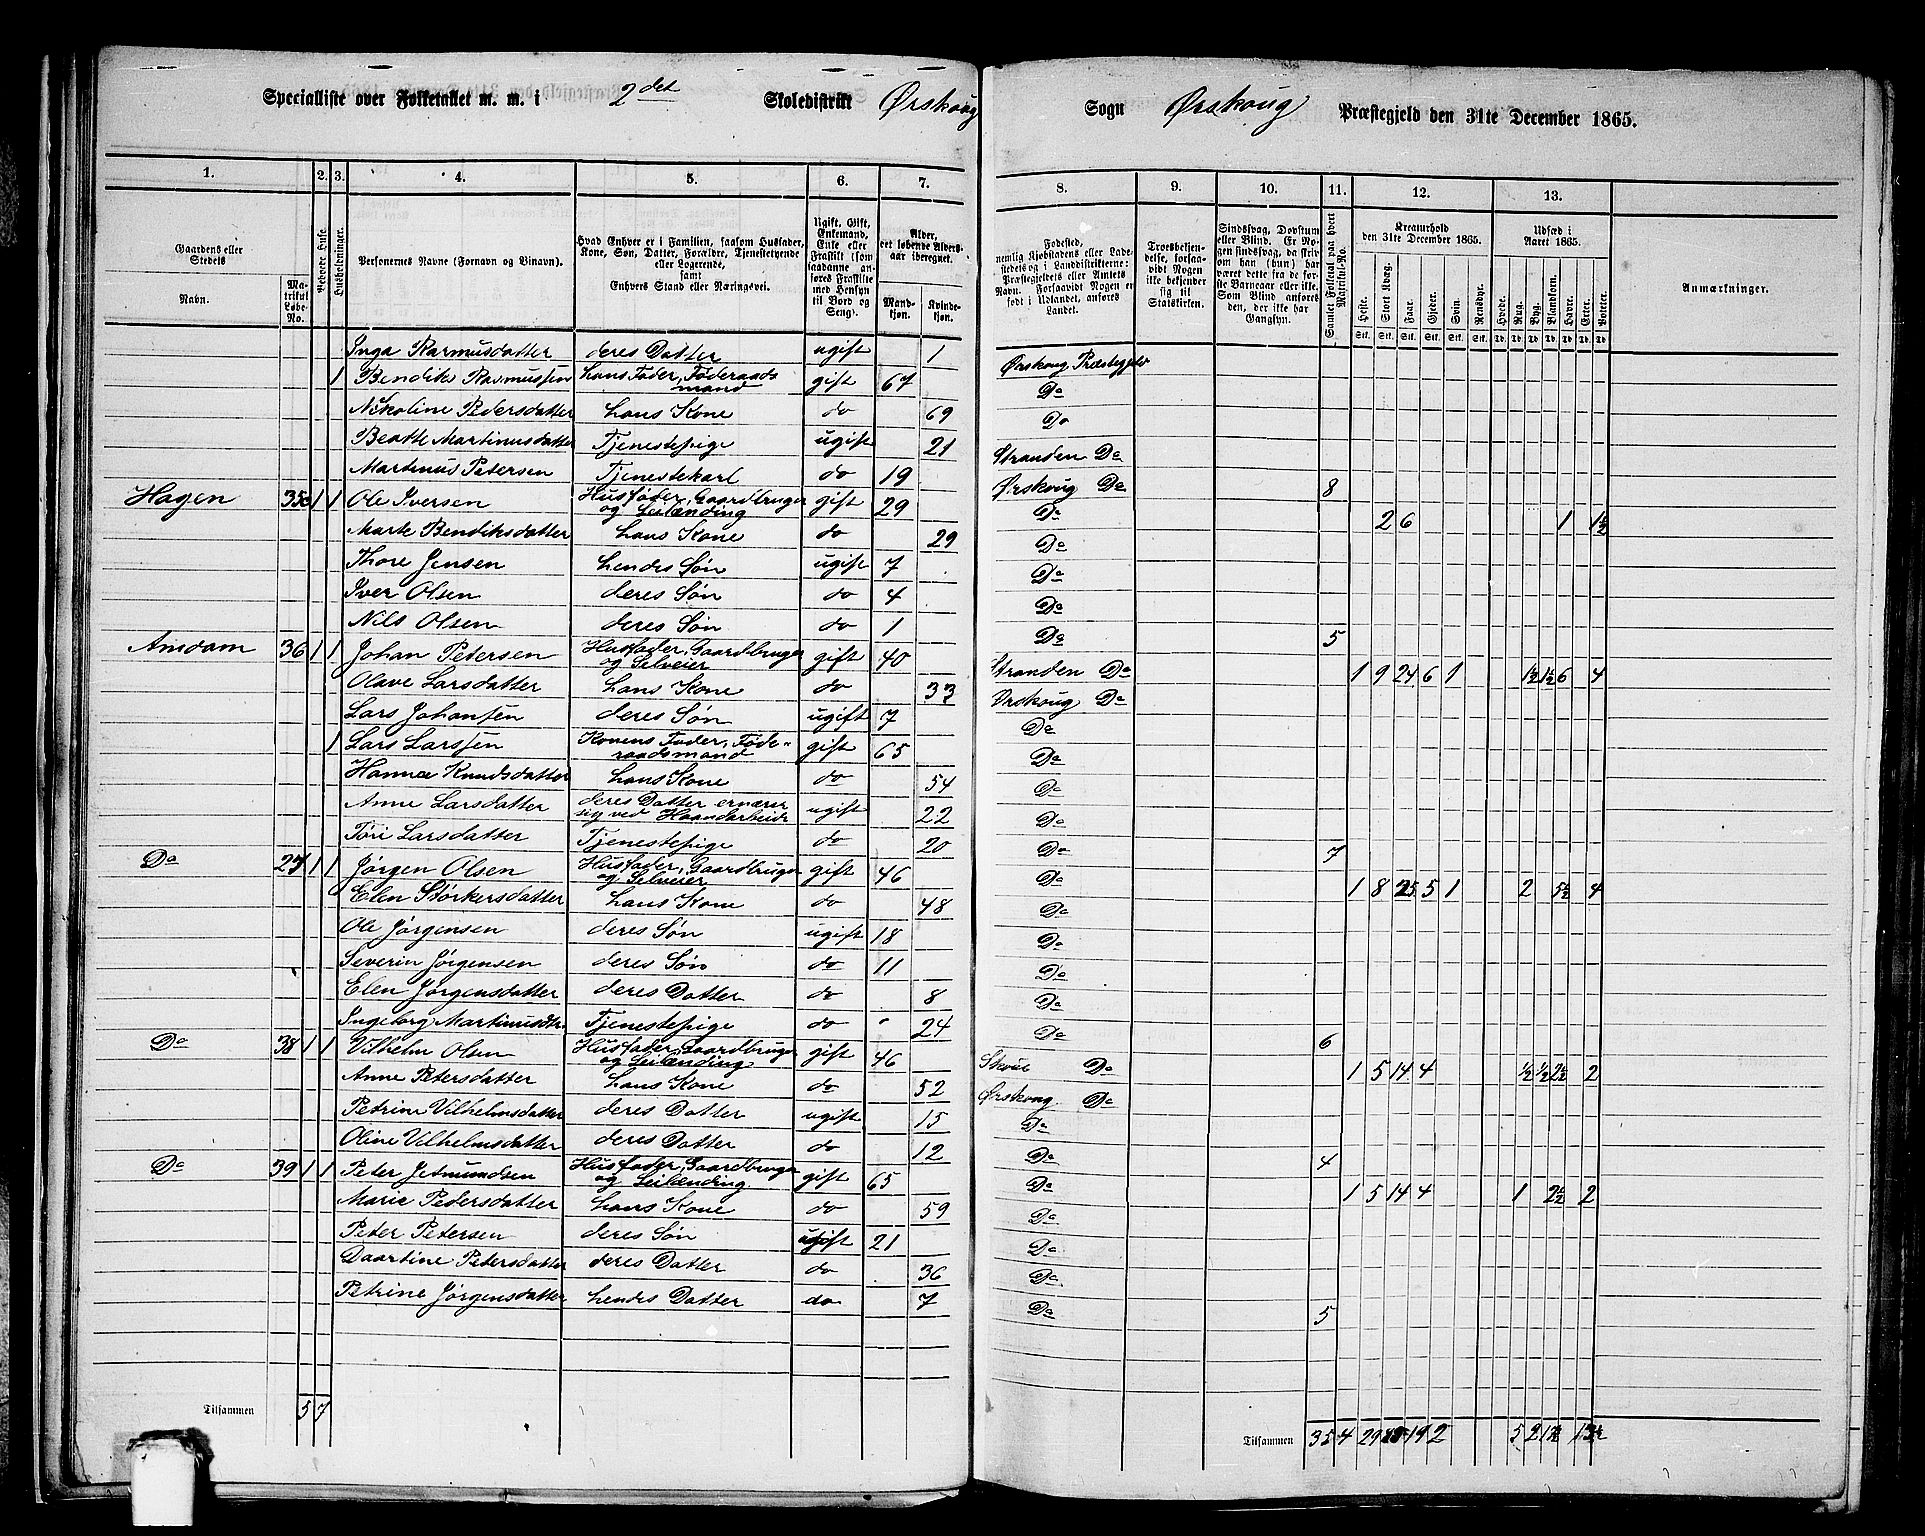 Specialliste over Folketallet m. m. i 2det Skoledistrikt Ørskoug Sogn Ørskoug Præstegjeld den 31te December 1865.
1. 2. 3. 4. 5. 6. 7. 8. 9. 10. 11. 12. 13.
Gaardens eller Stedets Navn. Matrikul Løbe-No. Beboede Huse. Husholdninger. Personernes Navne (Fornavn og Binavn). Hvad Enhver er i Familien, saasom Husfader, Kone, Søn, Datter, Forældre, Tjenestetyende eller Logerende, samt Enhvers Stand eller Næringsvei. Ugift, Gift, Enkemand, Enke eller Fraskilt (som saadanne anføres Fraskilte med Hensyn til Bord og Seng). Alder, det løbende Aldersaar iberegnet. Mandkjøn. Kvindekjøn. Fødested, nemlig Kjøbstadens eller Ladestedets og i Landdistrikterne: Præstegjeldets eller Amtets Navn. Forsaavidt Nogen er født i Udlandet, anføres Landet. Troesbekjendelse, forsaavidt Nogen ikke bekjender sig til Statskirken. Sindssvag, Døvstum eller Blind. Er Nogen sindssvag, da skrives om han (hun) har været dette fra de første Barneaar eller ikke. Som Blind anføres den, der ikke har Gangsyn. Samlet Folketal paa hvert Matrikul-No. Kreaturhold den 31te December 1865. Heste. Stort Kvæg. Faar. Gjeder. Svin. Rensdyr. Udsæd i Aaret 1865. Hvede. Rug. Byg. Blandkorn. Havre. Erter. Poteter. Anmærkninger.
Inga Rasmusdatter deres Datter ugift 1 Ørskoug Præstegjeld
1 Bendik Rasmussen hans Fader, Føderaadsmand gift 67 Do
Nikoline Pedersdatter hans Kone do 69 Do
Beatte Martinusdatter Tjenestepige ugift 21 Stranden Do
Martinus Petersen Tjenestekarl do 19 Ørskoug Do 8
Hagen 35 1 1 Ole Iversen Husfader, Gaardbruger og Leilænding gift 29 Do 2 6 1 1½
Marte Bendiksdatter hans Kone do 29 Do
Thore Jensen hendes Søn ugift 7 Do
Iver Olsen deres Søn do 4 Do
Nils Olsen deres Søn do 1 Do 5
Amdam 36 1 1 Johan Petersen Husfader, Gaardbruger og Selveier gift 40 Stranden Do 1 9 24 6 1 1½ 1½ 6 4
Olave Larsdatter hans Kone do 33 Ørskoug Do
Lars Johansen deres Søn ugift 7 Do
1 Lars Larssen Konens Fader, Føderaadsmand gift 65 Do
Hanna Knudsdatter hans Kone do 54 Do
Anne Larsdatter deres Datter ernærer sig ved Haandarbeide ugift 22 Do
Tøri Larsdatter Tjenestepige do 20 Do 7
Do 27 1 1 Jørgen Olsen Husfader, Gaardbruger og Selveier gift 46 Do 1 8 25 5 1 2 5½ 4
Elen Størkersdatter hans Kone do 48 Do
Ole Jørgensen deres Søn ugift 18 Do
Severin Jørgensen deres Søn do 11 Do
Elen Jørgensdatter deres Datter do 8 Do
Ingeborg Martinusdtr. Tjenestepige do 24 Do 6
Do 38 1 1 Vilhelm Olsen Husfader, Gaardbruger og Leilænding gift 46 Do 1 5 14 4 ½ ½ 2½ 2
Anne Petersdatter hans Kone do 52 Ørskoug Do
Petrine Vilhelmsdatter deres Datter ugift 15 Do
Oline Vilhelmsdatter deres Datter do 12 Do 4
Do 39 1 1 Peter Jetmundsen Husfader, Gaardbruger og Leilænding gift 65 Do 1 5 14 4 1 2½ 2
Marie Pedersdatter hans Kone do 59 Do
Peter Petersen deres Søn ugift 21 Do
Daartine Petersdatter deres Datter do 36 Do
Petrine Jørgensdatter hendes Datter do 7 Do 5
Tilsammen 5 7 Tilsammen 35 4 29 19 2 5 2